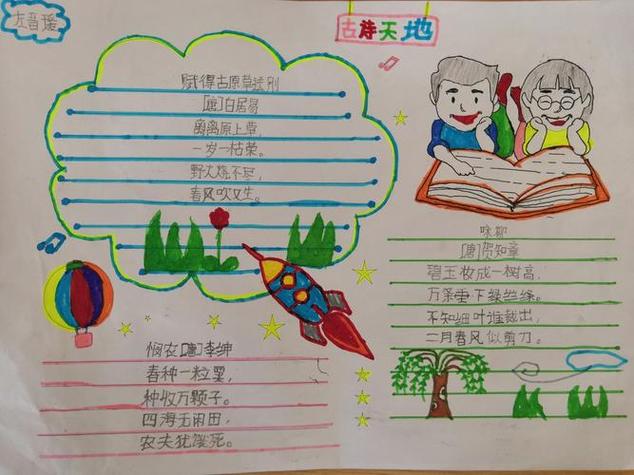 左晋瑶
古诗天地
赋得古原草送别
[唐]白居易
离离原上草,
一岁一枯荣。
野火烧不尽,
春风吹又生。
咏柳
[唐]贺知章
碧玉妆成一树高,
万条垂下绿丝绦。
不知细叶谁裁出,
二月春风似剪刀。
悯农[唐]李绅
春种一粒粟,
种收万颗子。
四海无闲田,
农夫犹饿死。